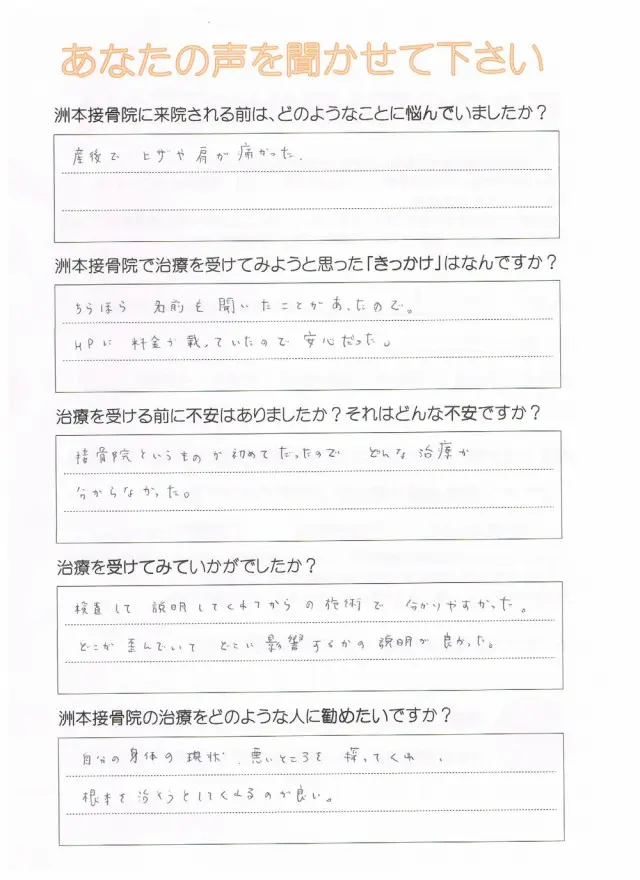 あなたの声を聞かせて下さい
洲本接骨院に来院される前は、どのようなことに悩んでいましたか？
産後で ヒザや肩が痛かった.
洲本接骨院で治療を受けてみようと思った「きっかけ」はなんですか？
ちらほら 名前も聞いたことがあったので。
HPに 料金が載っていたので安心だった。
治療を受ける前に不安はありましたか？それはどんな不安ですか？
接骨院というものが初めてだったので どんな治療か
分からなかった。
治療を受けてみていかがでしたか？
検査して 説明してくれてからの施術で 分かりやすかった。
どこが歪んでいて どこに影響するかの説明が良かった。
洲本接骨院の治療をどのような人に勧めたいですか？
自分の身体の現状、悪いところを 探ってくれ、
根本を治そうとしてくれるのが良い。